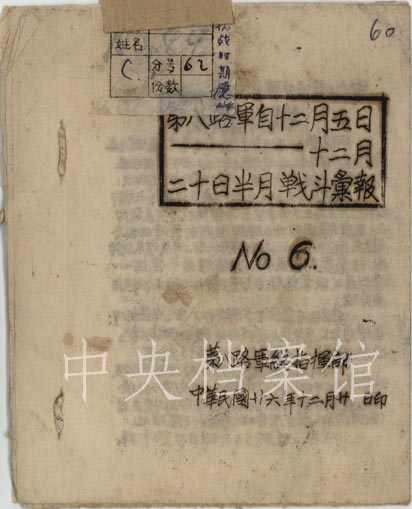 60
抗战时期
姓名
C
分号
62
份数
第八路軍自十二月五日
十二月
二十日半月戦斗彙報
No 6.
中央档案馆
第八路軍總指揮部
中華民國廿六年十二月廿 日印